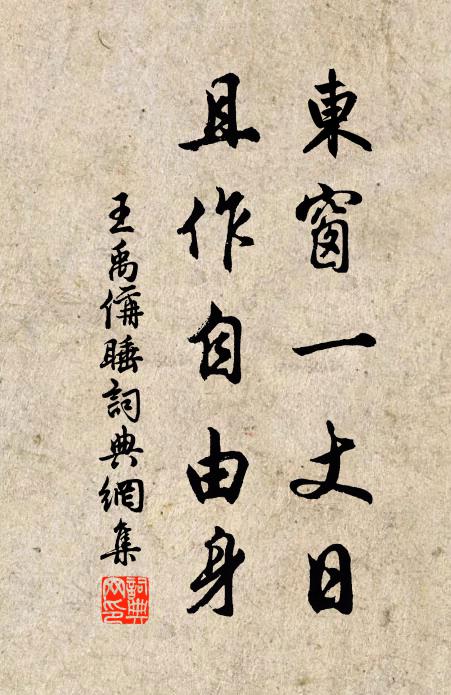 東窗一丈日
且作自由身
王禹偁睡詞典網集
詞典網印